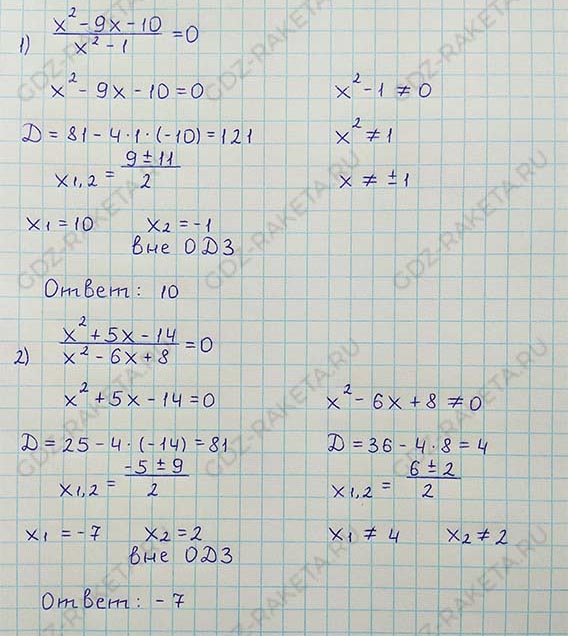 1) (x² - 9x - 10)/(x² - 1) = 0
x² - 9x - 10 = 0    x² - 1 ≠ 0
D = 81 - 4·1·(-10) = 121    x² ≠ 1
x1,2 = (9 ± 11)/2    x ≠ ±1
x1 = 10    x2 = -1
вне ОДЗ
Ответ: 10
2) (x² + 5x - 14)/(x² - 6x + 8) = 0
x² + 5x - 14 = 0    x² - 6x + 8 ≠ 0
D = 25 - 4·(-14) = 81    D = 36 - 4·8 = 4
x1,2 = (-5 ± 9)/2    x1,2 = (6 ± 2)/2
x1 = -7    x2 = 2    x1 ≠ 4    x2 ≠ 2
вне ОДЗ
Ответ: -7
GDZ-RAKETA.RU